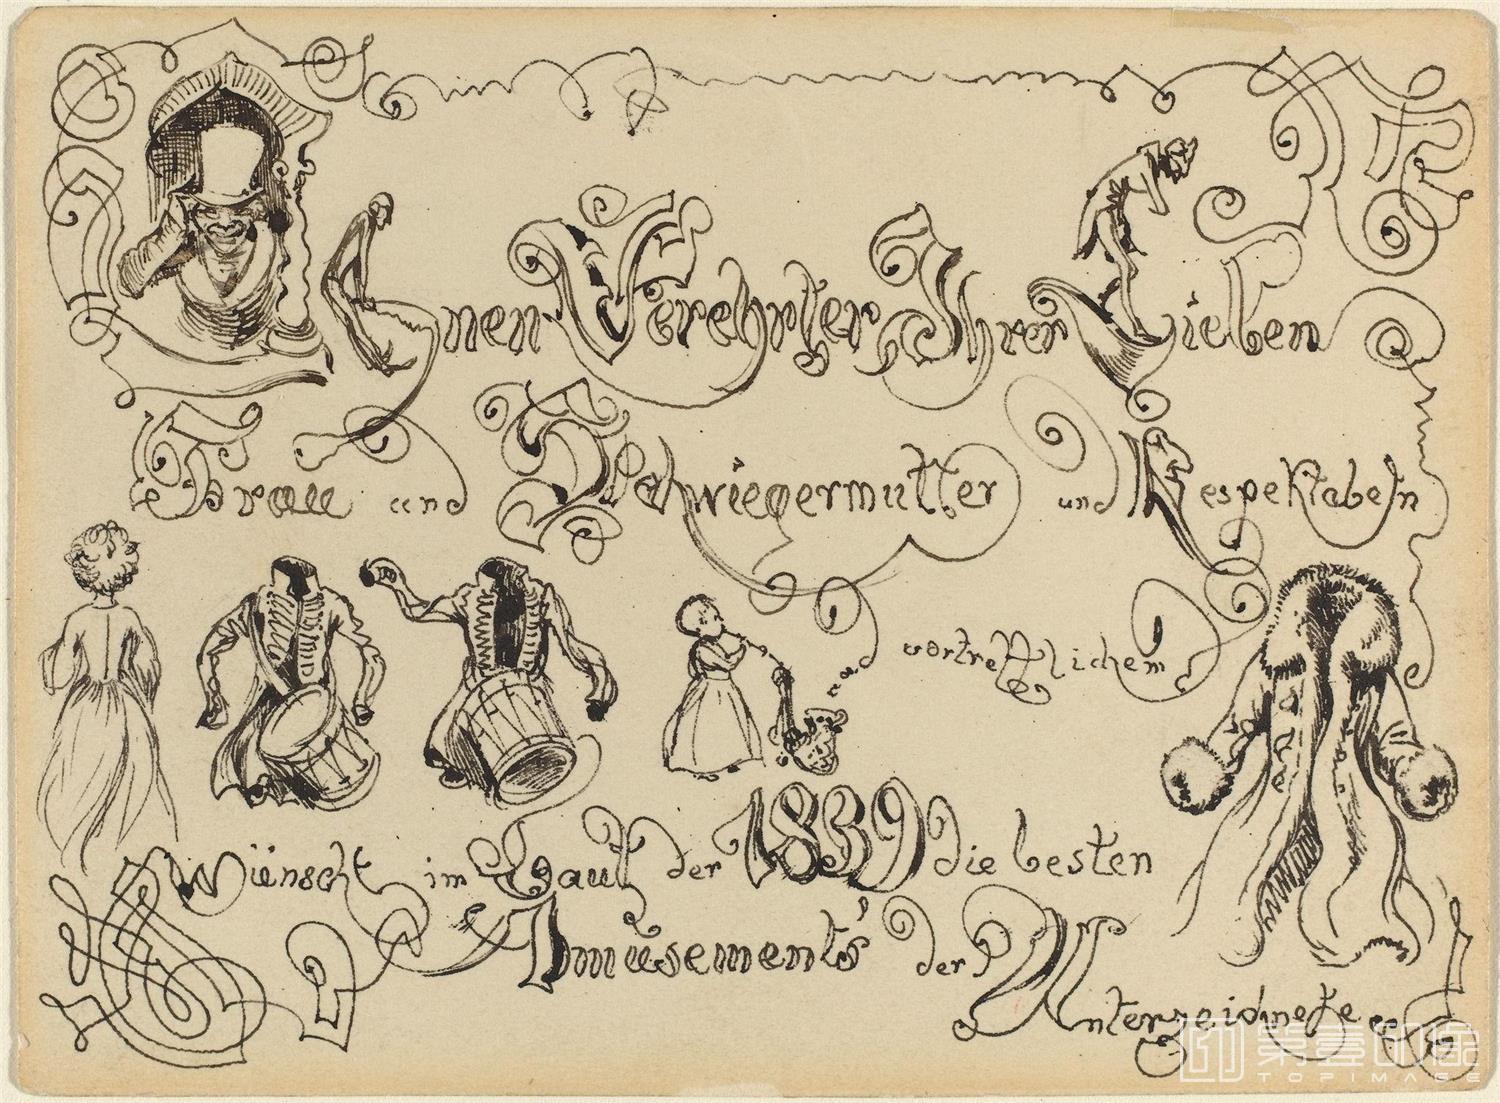 Ihnen Verehrter, Ihrer Lieben
Frau und Schwiegermutter und Respektabeln
und vortrefflichem
Wünscht im Lauf der 1889 die besten
Amüsements' der Unterzeichnete
第壹印象
TOPIMAGE